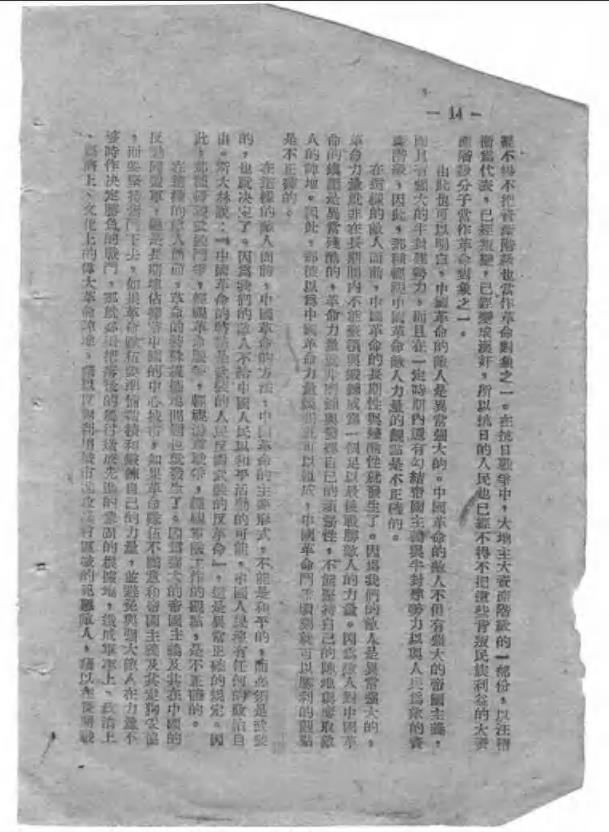 — 14 —
都不得不把資產階級也當作革命對象之一。在抗日戰爭中,大地主大資產階級的一部份,以汪精
衛為代表,已經叛變,已經變成漢奸,所以抗日的人民也已經不得不把這些背叛民族利益的大資
產階級分子當作革命對象之一。
由此也可以明白,中國革命的敵人是異常強大的。中國革命的敵人不但有強大的帝國主義,
而且有強大的半封建勢力,而且在一定時期內還有勾結帝國主義與半封建勢力以與人民為敵的資
產階級,因此,那種輕視中國革命敵人力量的觀點是不正確的。
在這樣的敵人面前,中國革命的長期性與殘酷性就發生了。因為我們的敵人是異常強大的,
革命力量就非在長期間內不能聚積與鍛鍊成為一個足以最後戰勝敵人的力量。因為敵人對中國革
命的鎮壓是異常殘酷的,革命力量就非磨練與發揮自己的頑強性,不能堅持自己的陣地與奪取敵
人的陣地。因此,那種以為中國革命力量瞬間就可以組成,中國革命鬥爭頃刻就可以勝利的觀點
是不正確的。
在這樣的敵人面前,中國革命的方法,中國革命的主要形式,不能是和平的,而必須是武裝
的,也就決定了。因為我們的敵人不給中國人民以和平活動的可能,中國人民沒有任何的政治自
由。斯大林說:「中國革命的特點是武裝的人民反對武裝的反革命」,這是異常正確的規定。因
此,那種輕視武裝鬥爭,輕視革命戰爭,輕視游擊戰爭,輕視軍隊工作的觀點,是不正確的。
在這樣的敵人面前,革命的特殊根據地問題也就發生了。因為強大的帝國主義及其在中國的
反動同盟軍,總是長期地佔據著中國的中心城市,如果革命隊伍不願意和帝國主義及其走狗妥協
,而要堅持奮鬥下去,如果革命隊伍要準備蓄積和鍛鍊自己的力量,並避免與強大敵人在力量不
夠時作決定勝負的戰鬥,那就必須把落後的鄉村造成先進的鞏固的根據地,造成軍事上、政治上
、經濟上、文化上的偉大革命陣地,藉以反對利用城市進攻鄉村區域的兇惡敵人,藉以在長期戰